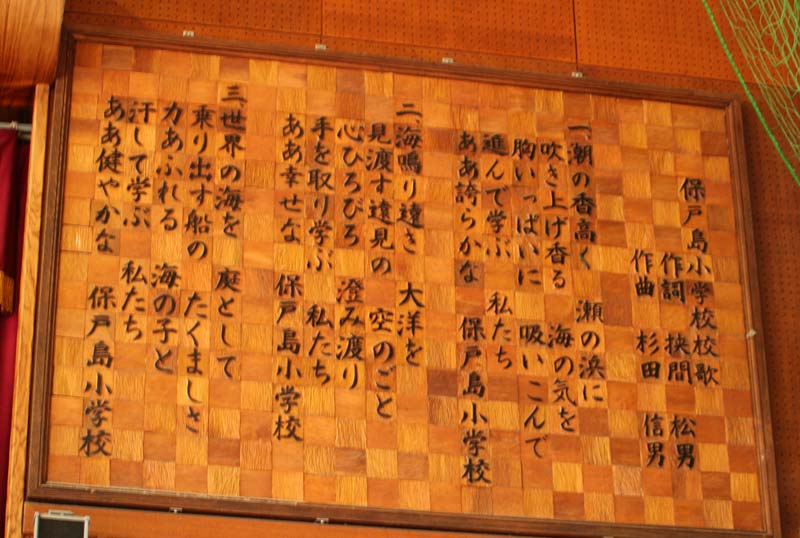 保戸島小学校校歌
作詞 挾間 松男
作曲 杉田 信男
一、潮の香高く 瀬の浜に
吹き上げ香る 海の気を
胸いっぱいに 吸いこんで
進んで学ぶ 私たち
ああ誇らかな 保戸島小学校
二、海鳴り遠き 大洋を
見渡す遠見の 空のごと
心ひろびろ 澄み渡り
手を取り学ぶ 私たち
ああ幸せな 保戸島小学校
三、世界の海を 庭として
乗り出す船の たくましさ
力あふれる 海の子と
汗して学ぶ 私たち
ああ健やかな 保戸島小学校